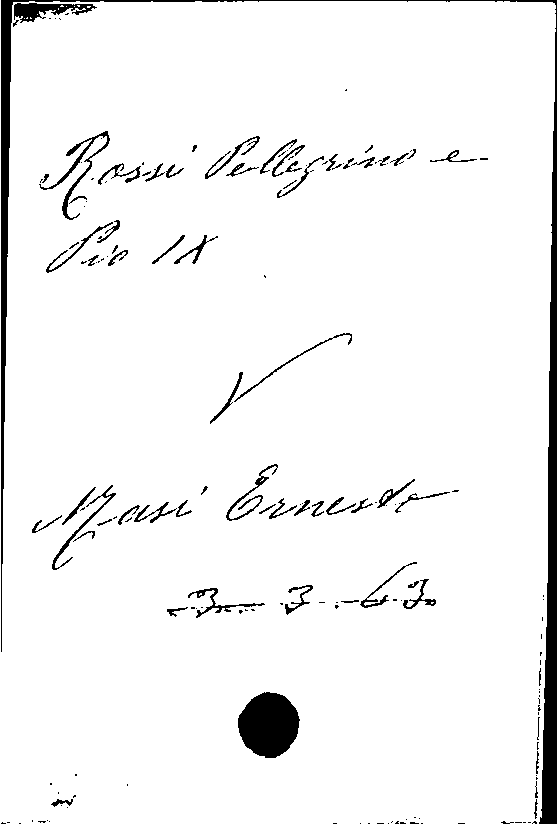 Rossi Pellegrino e
Pio IX
V
Masi Ernesto
3 3 . 63